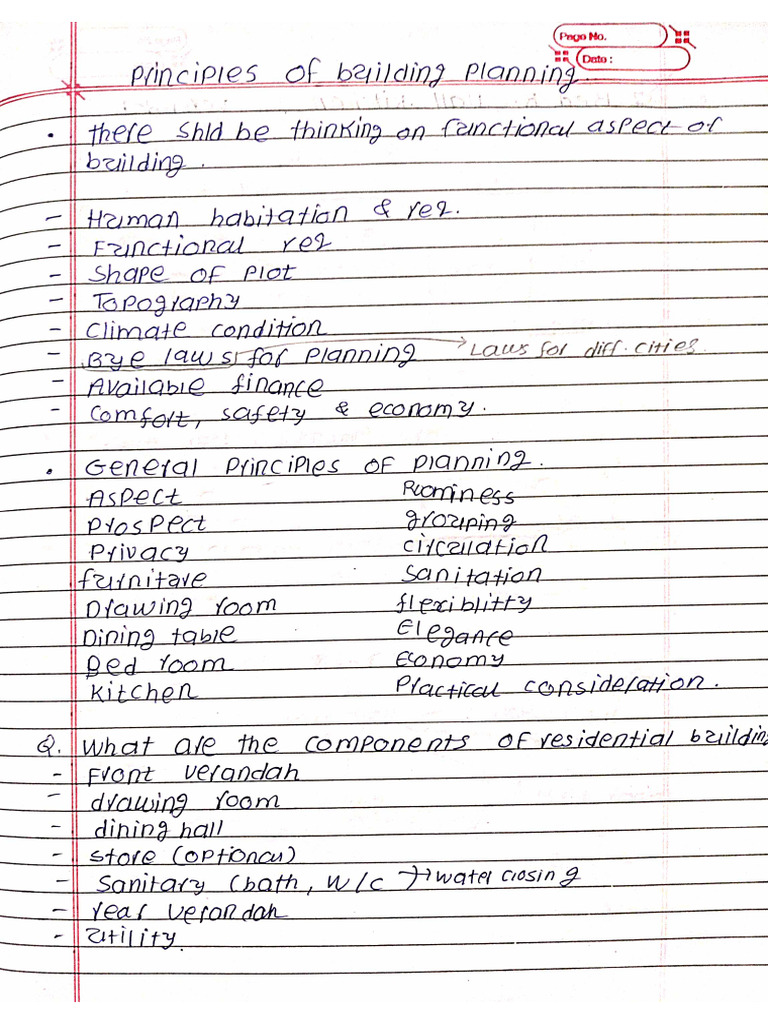 Page No.
Date :
Principles of building planning
• there shld be thinking on functional aspect of
building.
- Human habitation & req.
- Functional req
- Shape of plot
- Topography
- Climate condition
- Bye laws for planning → Laws for diff. cities.
- Available finance
- Comfort, safety & economy.
• General principles of planning.
Aspect Roominess
Prospect grouping
Privacy circulation
furniture sanitation
Drawing room flexiblitty
Dining table Elegance
Bed room Economy
Kitchen Practical consideration.
Q. What are the components of residential building
- Front verandah
- drawing room
- dining hall
- store (optional)
- Sanitary (bath, W/C → water closing
- rear verandah
- utility.